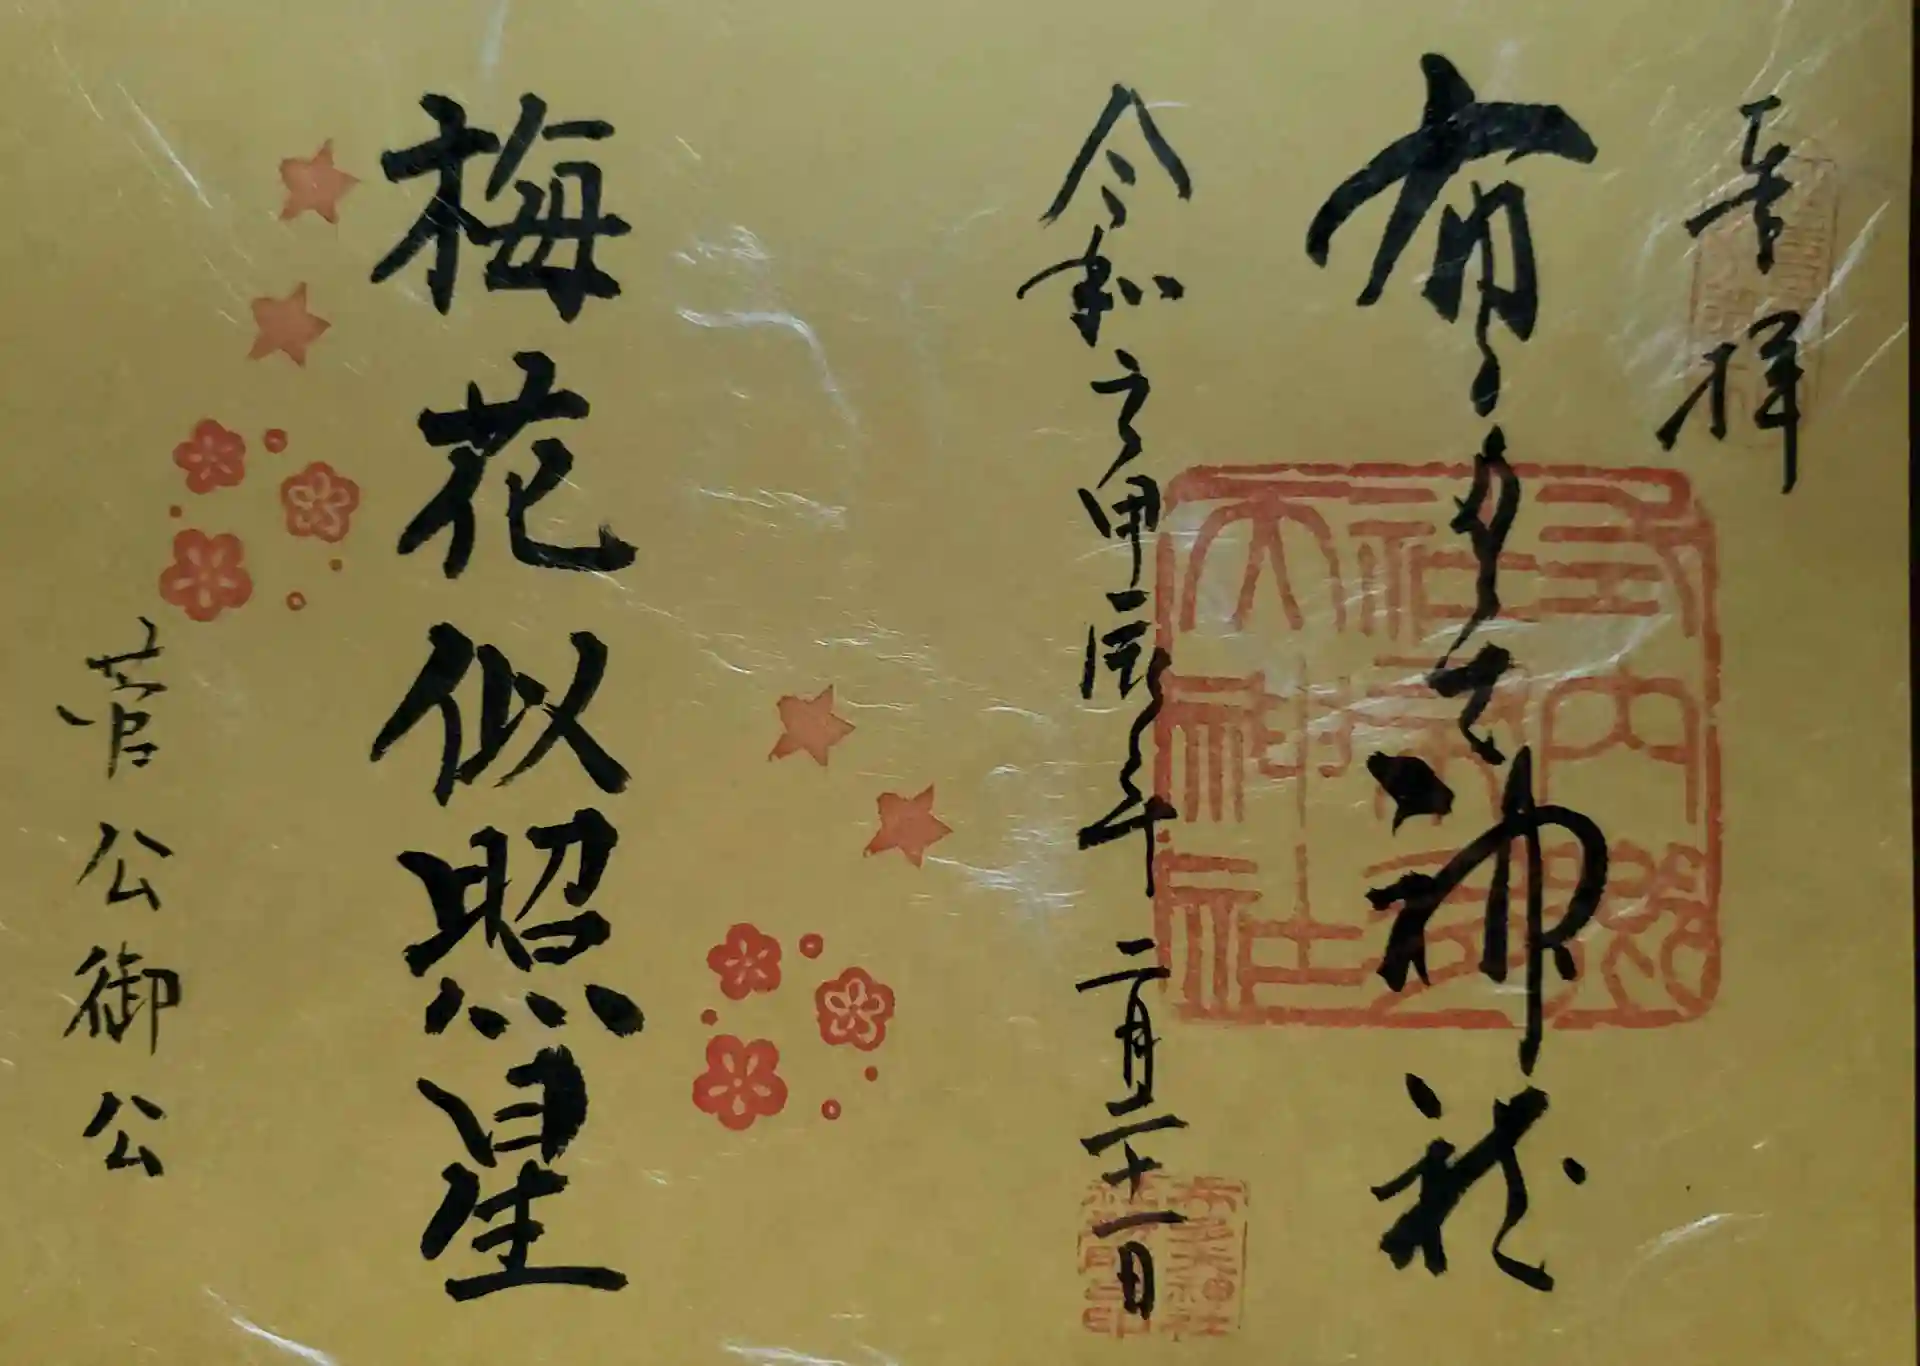 奉拝
布多天神社
令和六甲辰年二月二十一日
梅花似照星
菅公御公
天神社